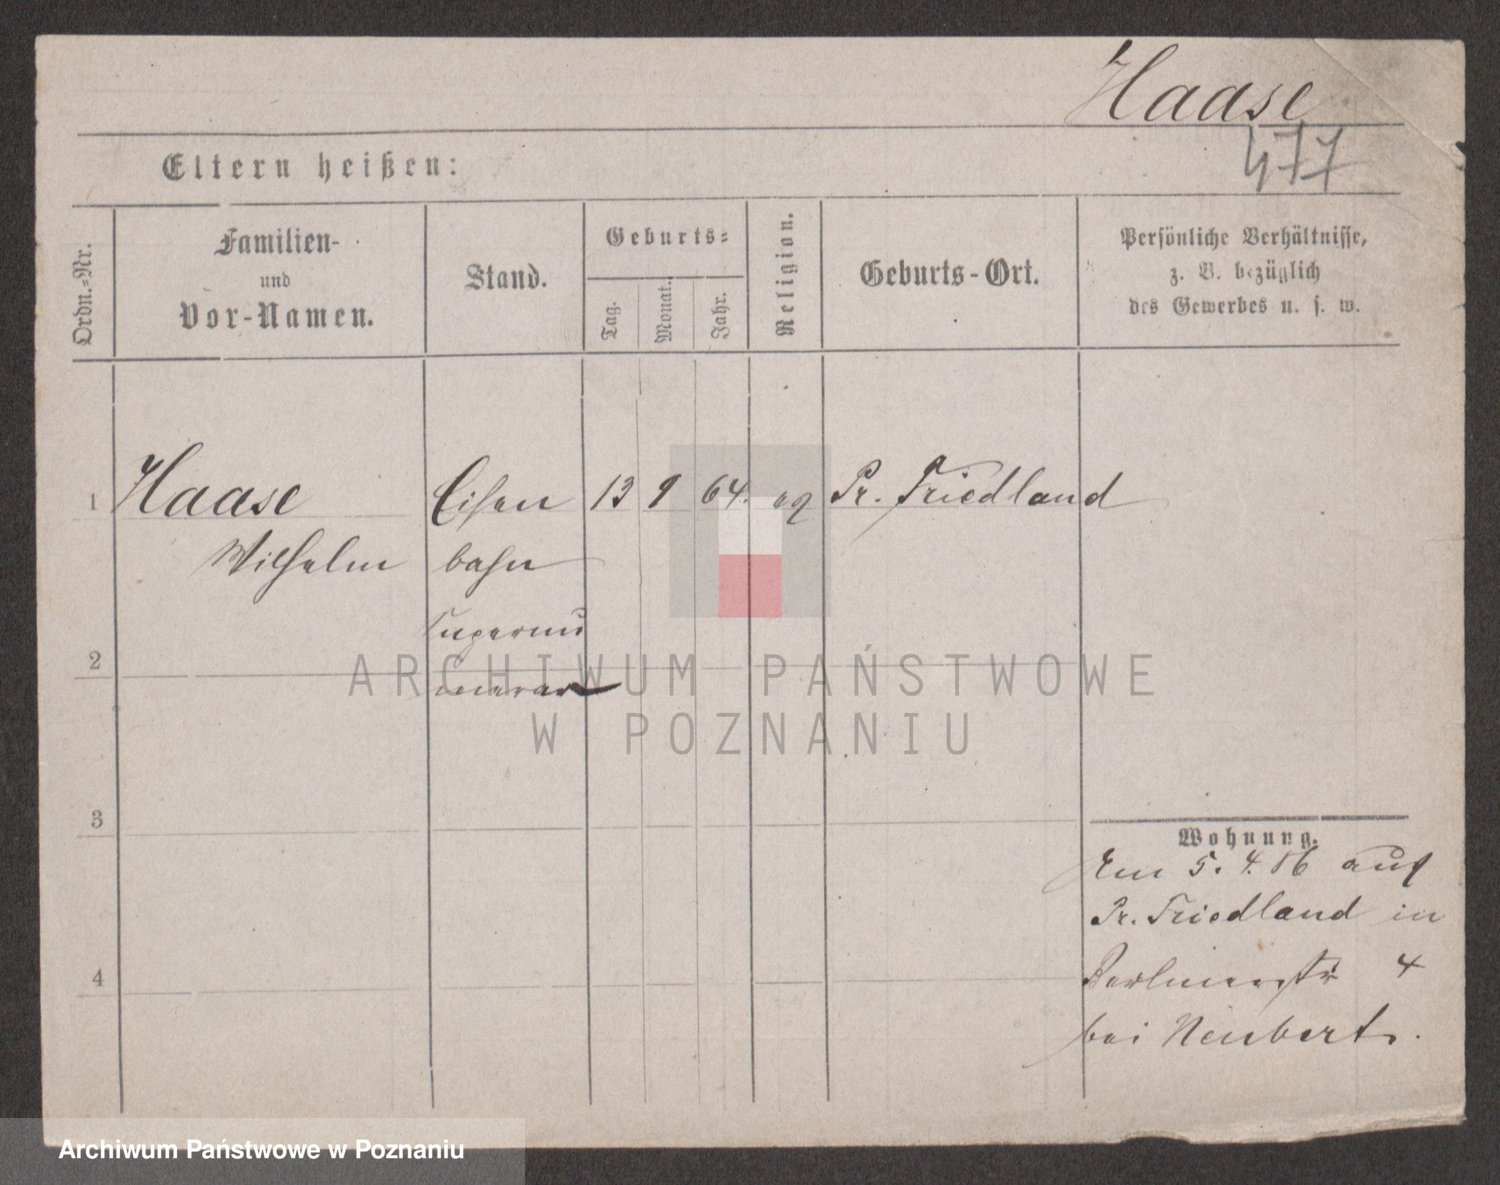 Haase
477
Eltern heißen:
Ordn.-Nr.
Familien-
und
Vor-Namen.
Stand.
Geburts-
Tag.
Monat.
Jahr.
Religion.
Geburts-Ort.
Persönliche Verhältnisse,
z. B. bezüglich
des Gewerbes u. s. w.
1 Haase Eisen 13 9 64. eg Pr. Friedland
Wilhelm bahn
Supernu
2
merar
ARCHIWUM PAŃSTWOWE
W POZNANIU
3
Wohnung.
5. 4. 86 auf
Pr. Friedland in
4
Berlinerstr 4
bei Neubert.
Archiwum Państwowe w Poznaniu